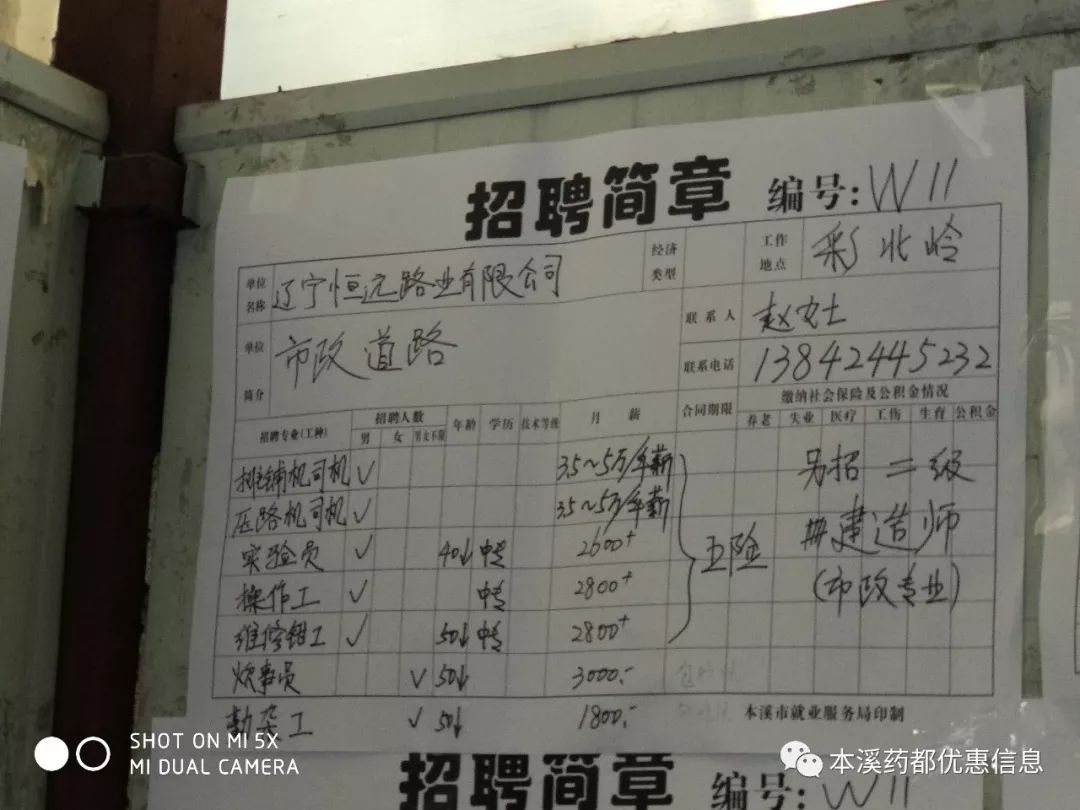 招聘简章 编号: W11
单位名称 辽宁恒远路业有限公司 经济类型 工作地点 彩北岭
单位简介 市政道路 联系人 赵女士
联系电话 13842445232
招聘专业(工种) 招聘人数 年龄 学历 技术等级 月薪 合同期限 缴纳社会保险及公积金情况
男 女 男女不限 养老 失业 医疗 工伤 生育 公积金
摊铺机司机 ✓ 3.5~5万/年薪
压路机司机 ✓ 3.5~5万/年薪
实验员 ✓ 40↓ 中专 2600+
操作工 ✓ 中专 2800+
维修钳工 ✓ 50↓ 中专 2800+
五险
另招二级
建造师
(市政专业)
炊事员 ✓ 50↓ 3000.-
勤杂工 ✓ 50↓ 1800.-
本溪市就业服务局印制
招聘简章 编号: W11
SHOT ON MI 5X
MI DUAL CAMERA
本溪药都优惠信息